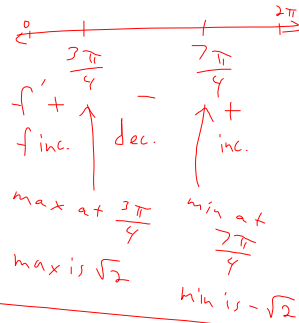 0 2π
3π/4 7π/4
f' + − +
f inc. dec. inc.
max at 3π/4 min at 7π/4
max is √2 min is -√2